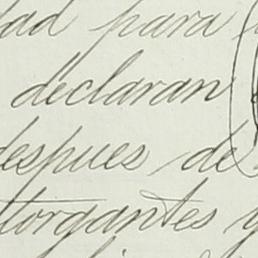 dad para
declaran
despues de
otorgantes y